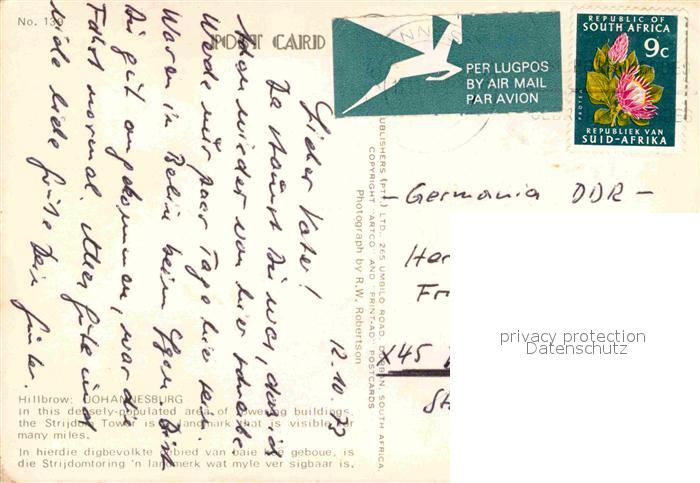 No. 139
POST CARD
PER LUGPOS
BY AIR MAIL
PAR AVION
REPUBLIC OF
SOUTH AFRICA
9c
PROTEA
REPUBLIEK VAN
SUID-AFRIKA
12.10.73
Lieber Vater!
Da staunst Du was, das ich
schon wieder von hier schreibe
Werde nur paar Tage hier sein.
Waren in Berlin beim Essen. Bist
Du gut angekommen, war die
Fahrt normal. Alles Gute und
viele liebe Grüße Dein Günter.
- Germania DDR -
Her
Fr
X45
St
PUBLISHERS (PTY.) LTD., 265 UMBILO ROAD, DURBAN, SOUTH AFRICA.
COPYRIGHT "ARTCO" AND "PRINT-AD" POSTCARDS
Photograph by R.W. Robertson
privacy protection
Datenschutz
Hillbrow: JOHANNESBURG
In this densely-populated area of towering buildings,
the Strijdom Tower is a landmark that is visible for
many miles.
In hierdie digbevolkte gebied van baie hoë geboue, is
die Strijdomtoring 'n landmerk wat myle ver sigbaar is.